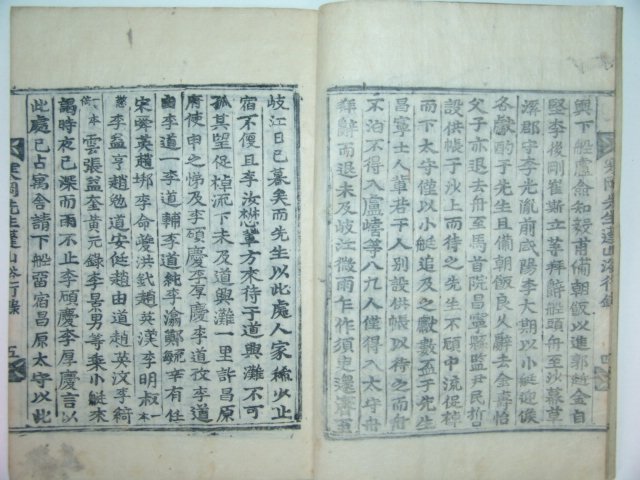 興下船盧知毅甫備朝飯以進郭金自
堅李後剛崔斯立等拜辭船頭舟至沙幕草
溪郡守李光胤前咸陽李大期以小艇迎候
各獻酌于先生且備朝飯良久辭去金壽恰
父子亦退去舟至馬首院昌寧縣監尹民哲
設供帳于沙上而待之先生不顧中流促棹
而下太守僅以小艇追及之獻數盃于先生
昌寧士人輩若干人別設供帳以待之而舟
不泊不得入盧等八九人僅得入太守舟
拜辭而退未及岐江微雨乍作須臾還霽至
寒岡先生蓬山浴行錄 四
岐江日已暮矣而先生以此處人家稀少止
宿不便且李汝懋輩方來待于道興灘不可
孤其望促棹流下未及道興灘一里許昌原
府使申之悌及李碩慶李厚慶李道孜李道
由李道一李道純李瀹鄭毓辛有任
宋瞬英趙垹李命夔洪趙英漢李明
李益亨趙勉道安侹趙由道趙英汶李綺
一本雲張益奎黃元祿李景男等乘小艇來
謁時夜已深而雨不止李碩慶李厚慶言以
此處已占寓舍請下船留宿昌原太守以此
寒岡先生蓬山浴行錄 五